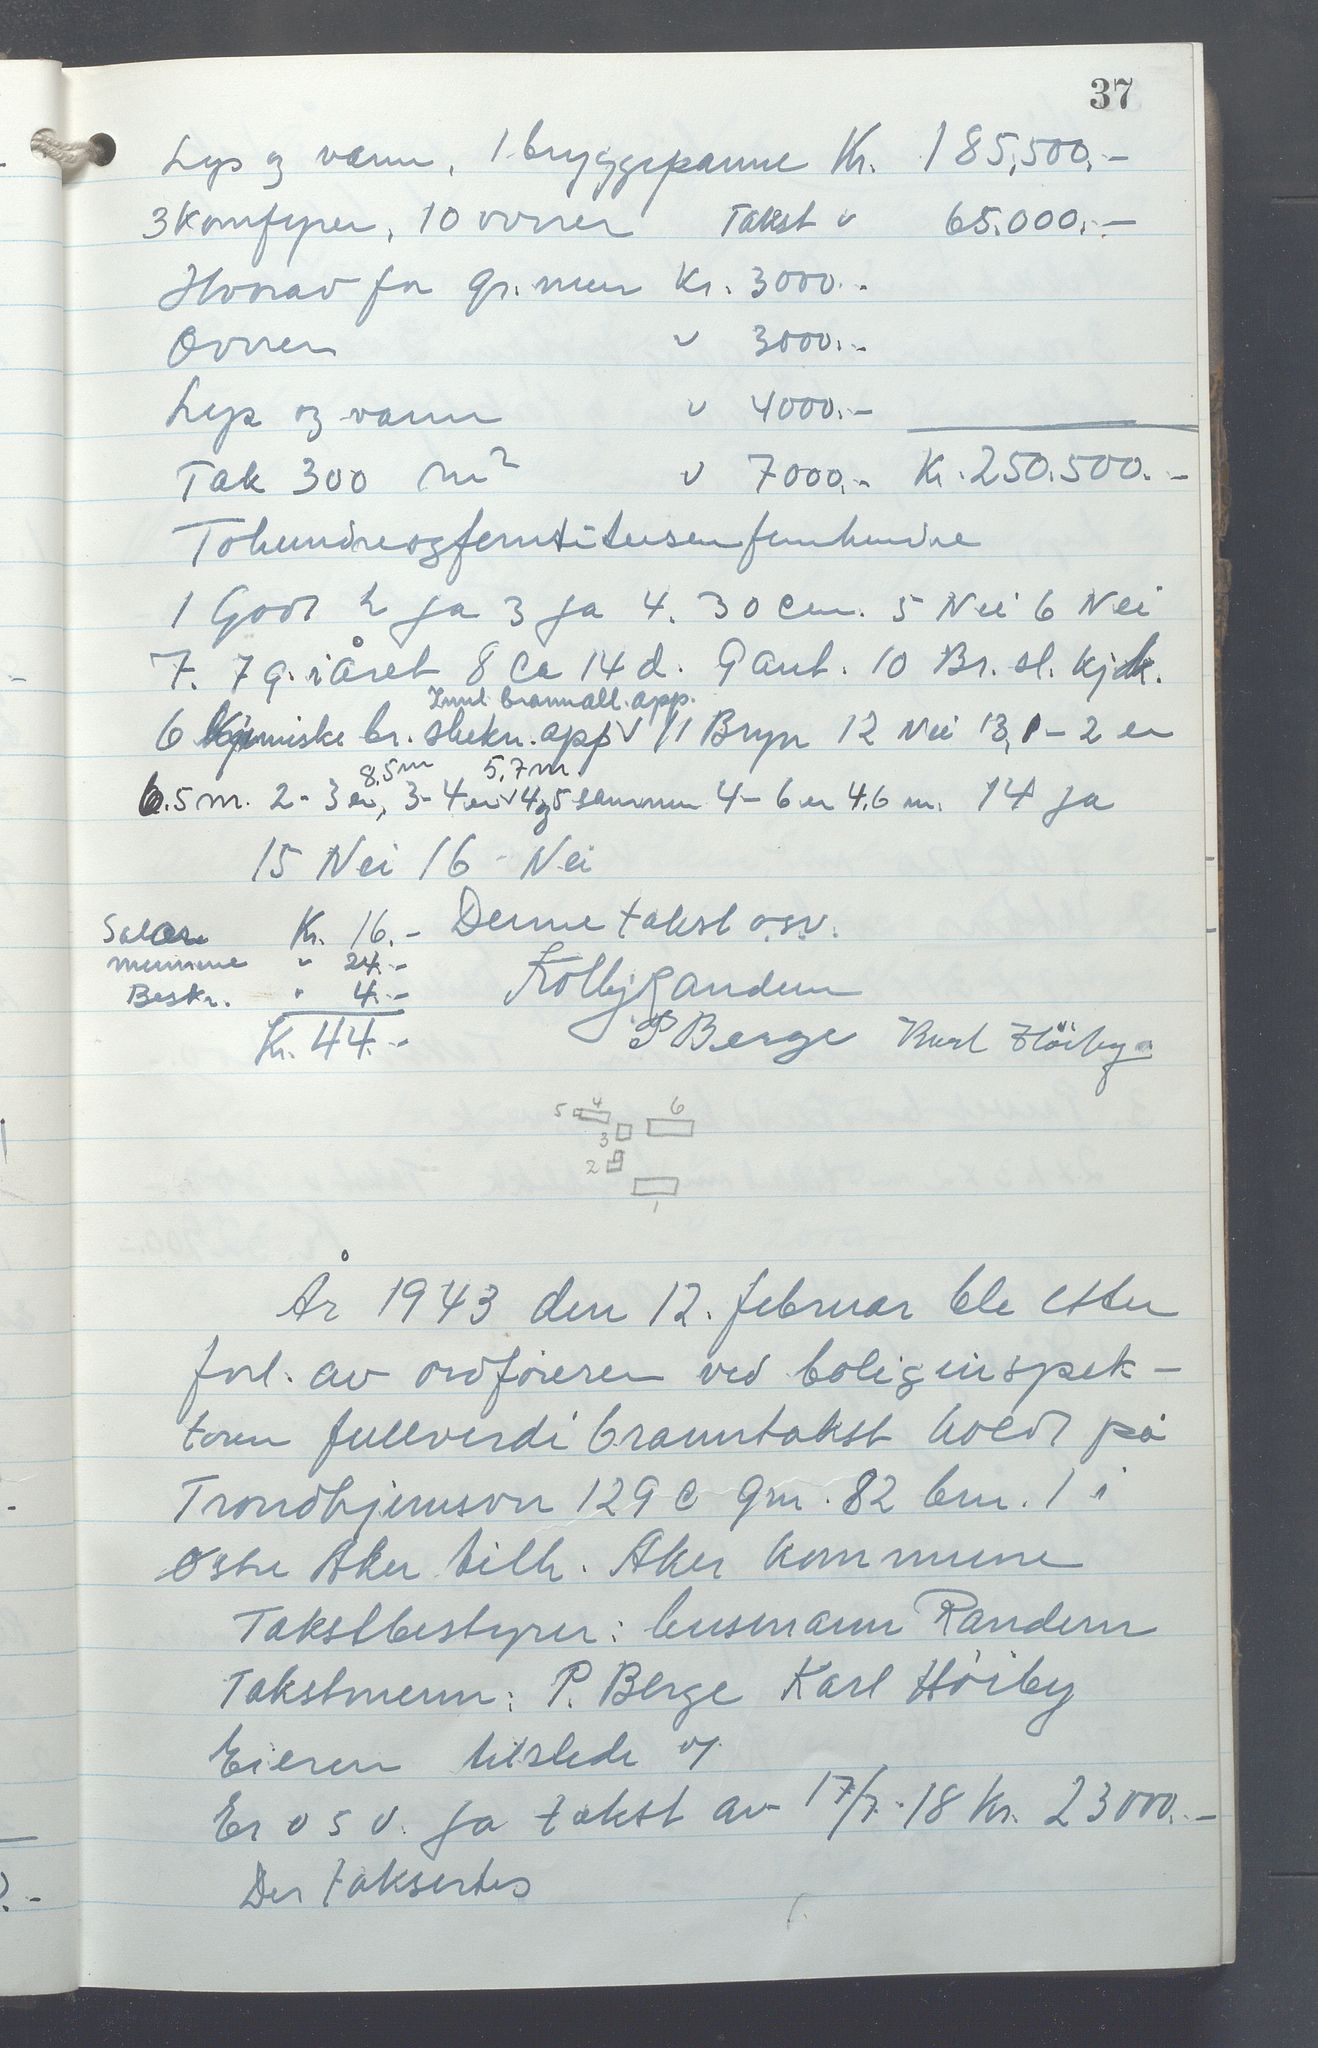 37
Lys og vann, 1 bryggepanne Kr. 185,500.-
3 komfyrer, 10 ovner Takst " 65.000.-
Hvorav for gr. mur Kr. 3000.-
Ovner " 3000.-
Lys og vann " 4000.-
Tak 300 m² " 7000.- Kr. 250.500.-
Tohundreogfemtitusenfemhundre
1 Godt 2 ja 3 ja 4. 30 cm. 5 Nei 6 Nei
7. 7 g. i året 8 Ca 14 d. 9 aut. 10 Br. sl. kjk.
brannall. app.
6 kjemiske br. slukn. app 11 Bryn 12 Nei 13, 1-2 er
8,5 m 5,7 m.
6.5 m. 2-3 er, 3-4 er 4 og 5 sammen 4-6 er 4,6 m. 14 ja
15 Nei 16 - Nei
Salær Kr. 16.- Denne takst o.s.v.
mennene " 24.-
Beskr. " 4.-
Kr. 44.-
Kolbj Randem
P Berge Karl Höiby
5 4 6
3
2
1
År 1943 den 12. februar ble etter
forl. av ordføreren ved boliginspek-
tøren fullverdi branntakst holdt på
Trondhjemsvn 129 C gnr. 82 bnr. 1 i
Østre Aker tilh. Aker kommune
Takstbestyrer: lensmann Randem
Takstmenn: P. Berge Karl Höiby
Eieren tilstede v/
Er o s v. ja takst av 17/7-18 Kr. 23000.-
Der taksertes